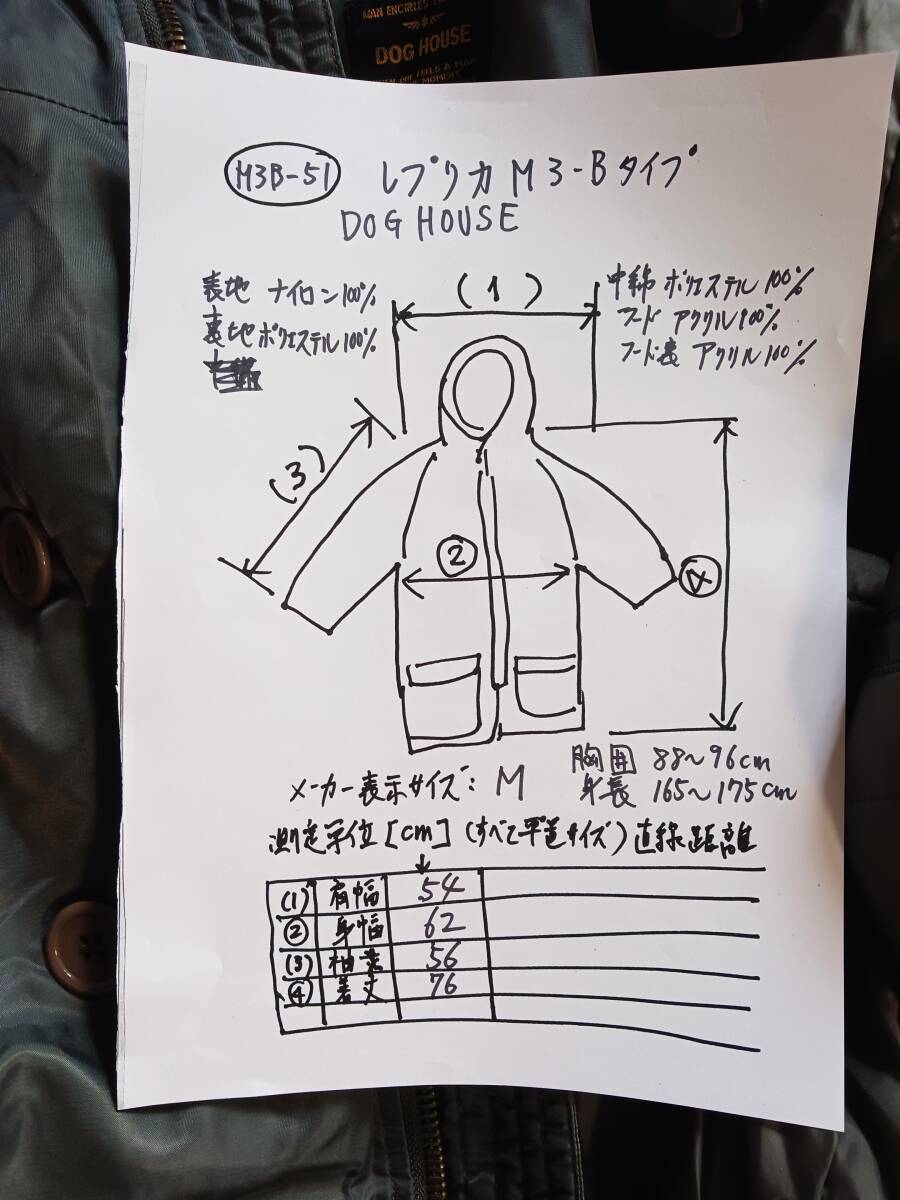 MAN ENCIRLES TH
DOG HOUSE
FEELS A MA
MOMENT
M3B-51 レプリカ M3-Bタイプ
DOG HOUSE
表地 ナイロン100%
裏地 ポリエステル100%
中綿 ポリエステル100%
フード アクリル100%
フード裏 アクリル100%
(1)
(3)
②
④
メーカー表示サイズ: M
胸囲 88~96cm
身長 165~175cm
測定単位[cm](すべて平置サイズ)直線距離
(1) 肩幅 54
② 身幅 62
(3) 袖丈 56
④ 着丈 76